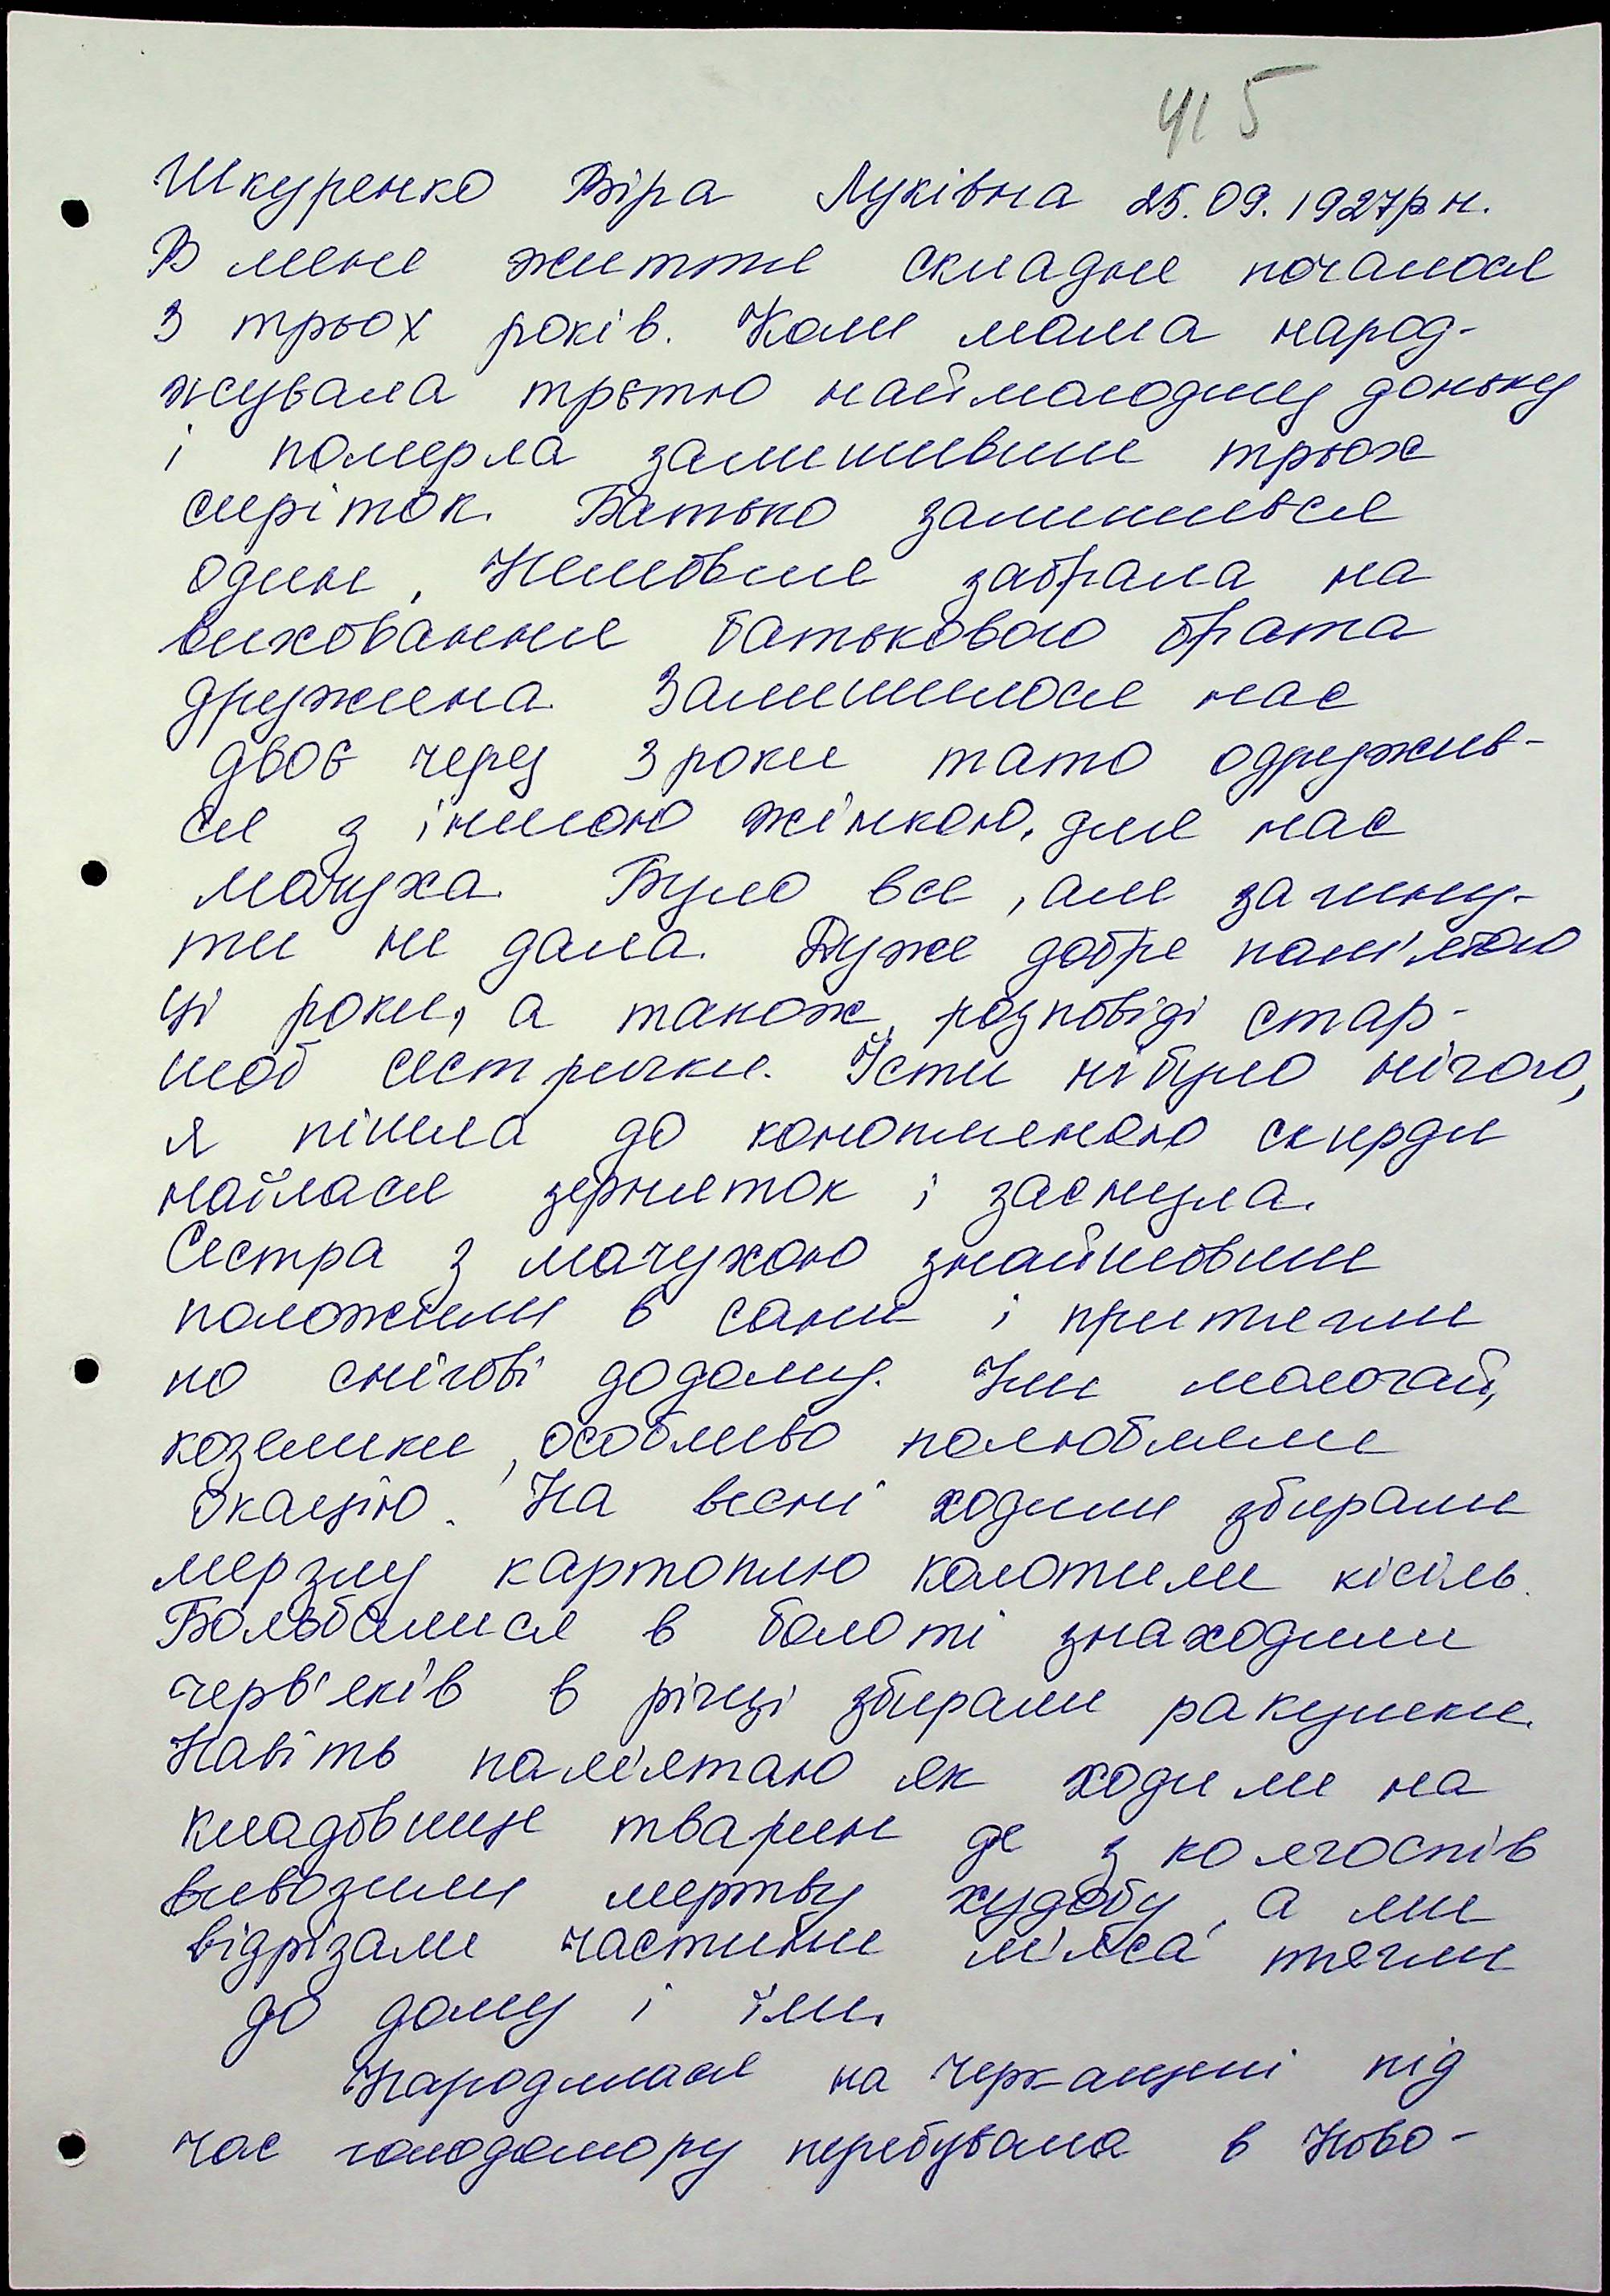 415
Шкуренко Віра Луківна 25.09.1927р н.
В мене життя складне почалося
з трьох років. Коли мама народ-
жувала третю наймолодшу доньку
і померла залишивши трьох
сиріток. Батько залишився
один, Немовля забрала на
виховання батькового брата
дружина. Залишилося нас
двоє через 3 роки тато одружив-
ся з іншою жінкою, для нас
мачуха. Було все, але загину-
ти не дала. Дуже добре пам'ятаю
ці роки, а також розповіді стар-
шоб сестрички. Їсти не було нічого,
я пішла до конопляного скирди
наїлася зерняток і заснула.
Сестра з мачухою знайшовши
положили в сани і притягли
по снігові додому. Їли молочай,
козелики, особливо полюбляли
окацію. На весні ходили збирали
мерзлу картоплю колотили кісіль.
Бользалися в болоті знаходили
черв'яків в річці збирали ракушки.
Навіть пам'ятаю як ходили на
кладовище тварин де з колгоспів
вивозили мертву худобу, а ми
відрізали частини м'яса тягли
до дому і їли.
Народилася на Черкащині під
час голодомору перебувала в Ново-